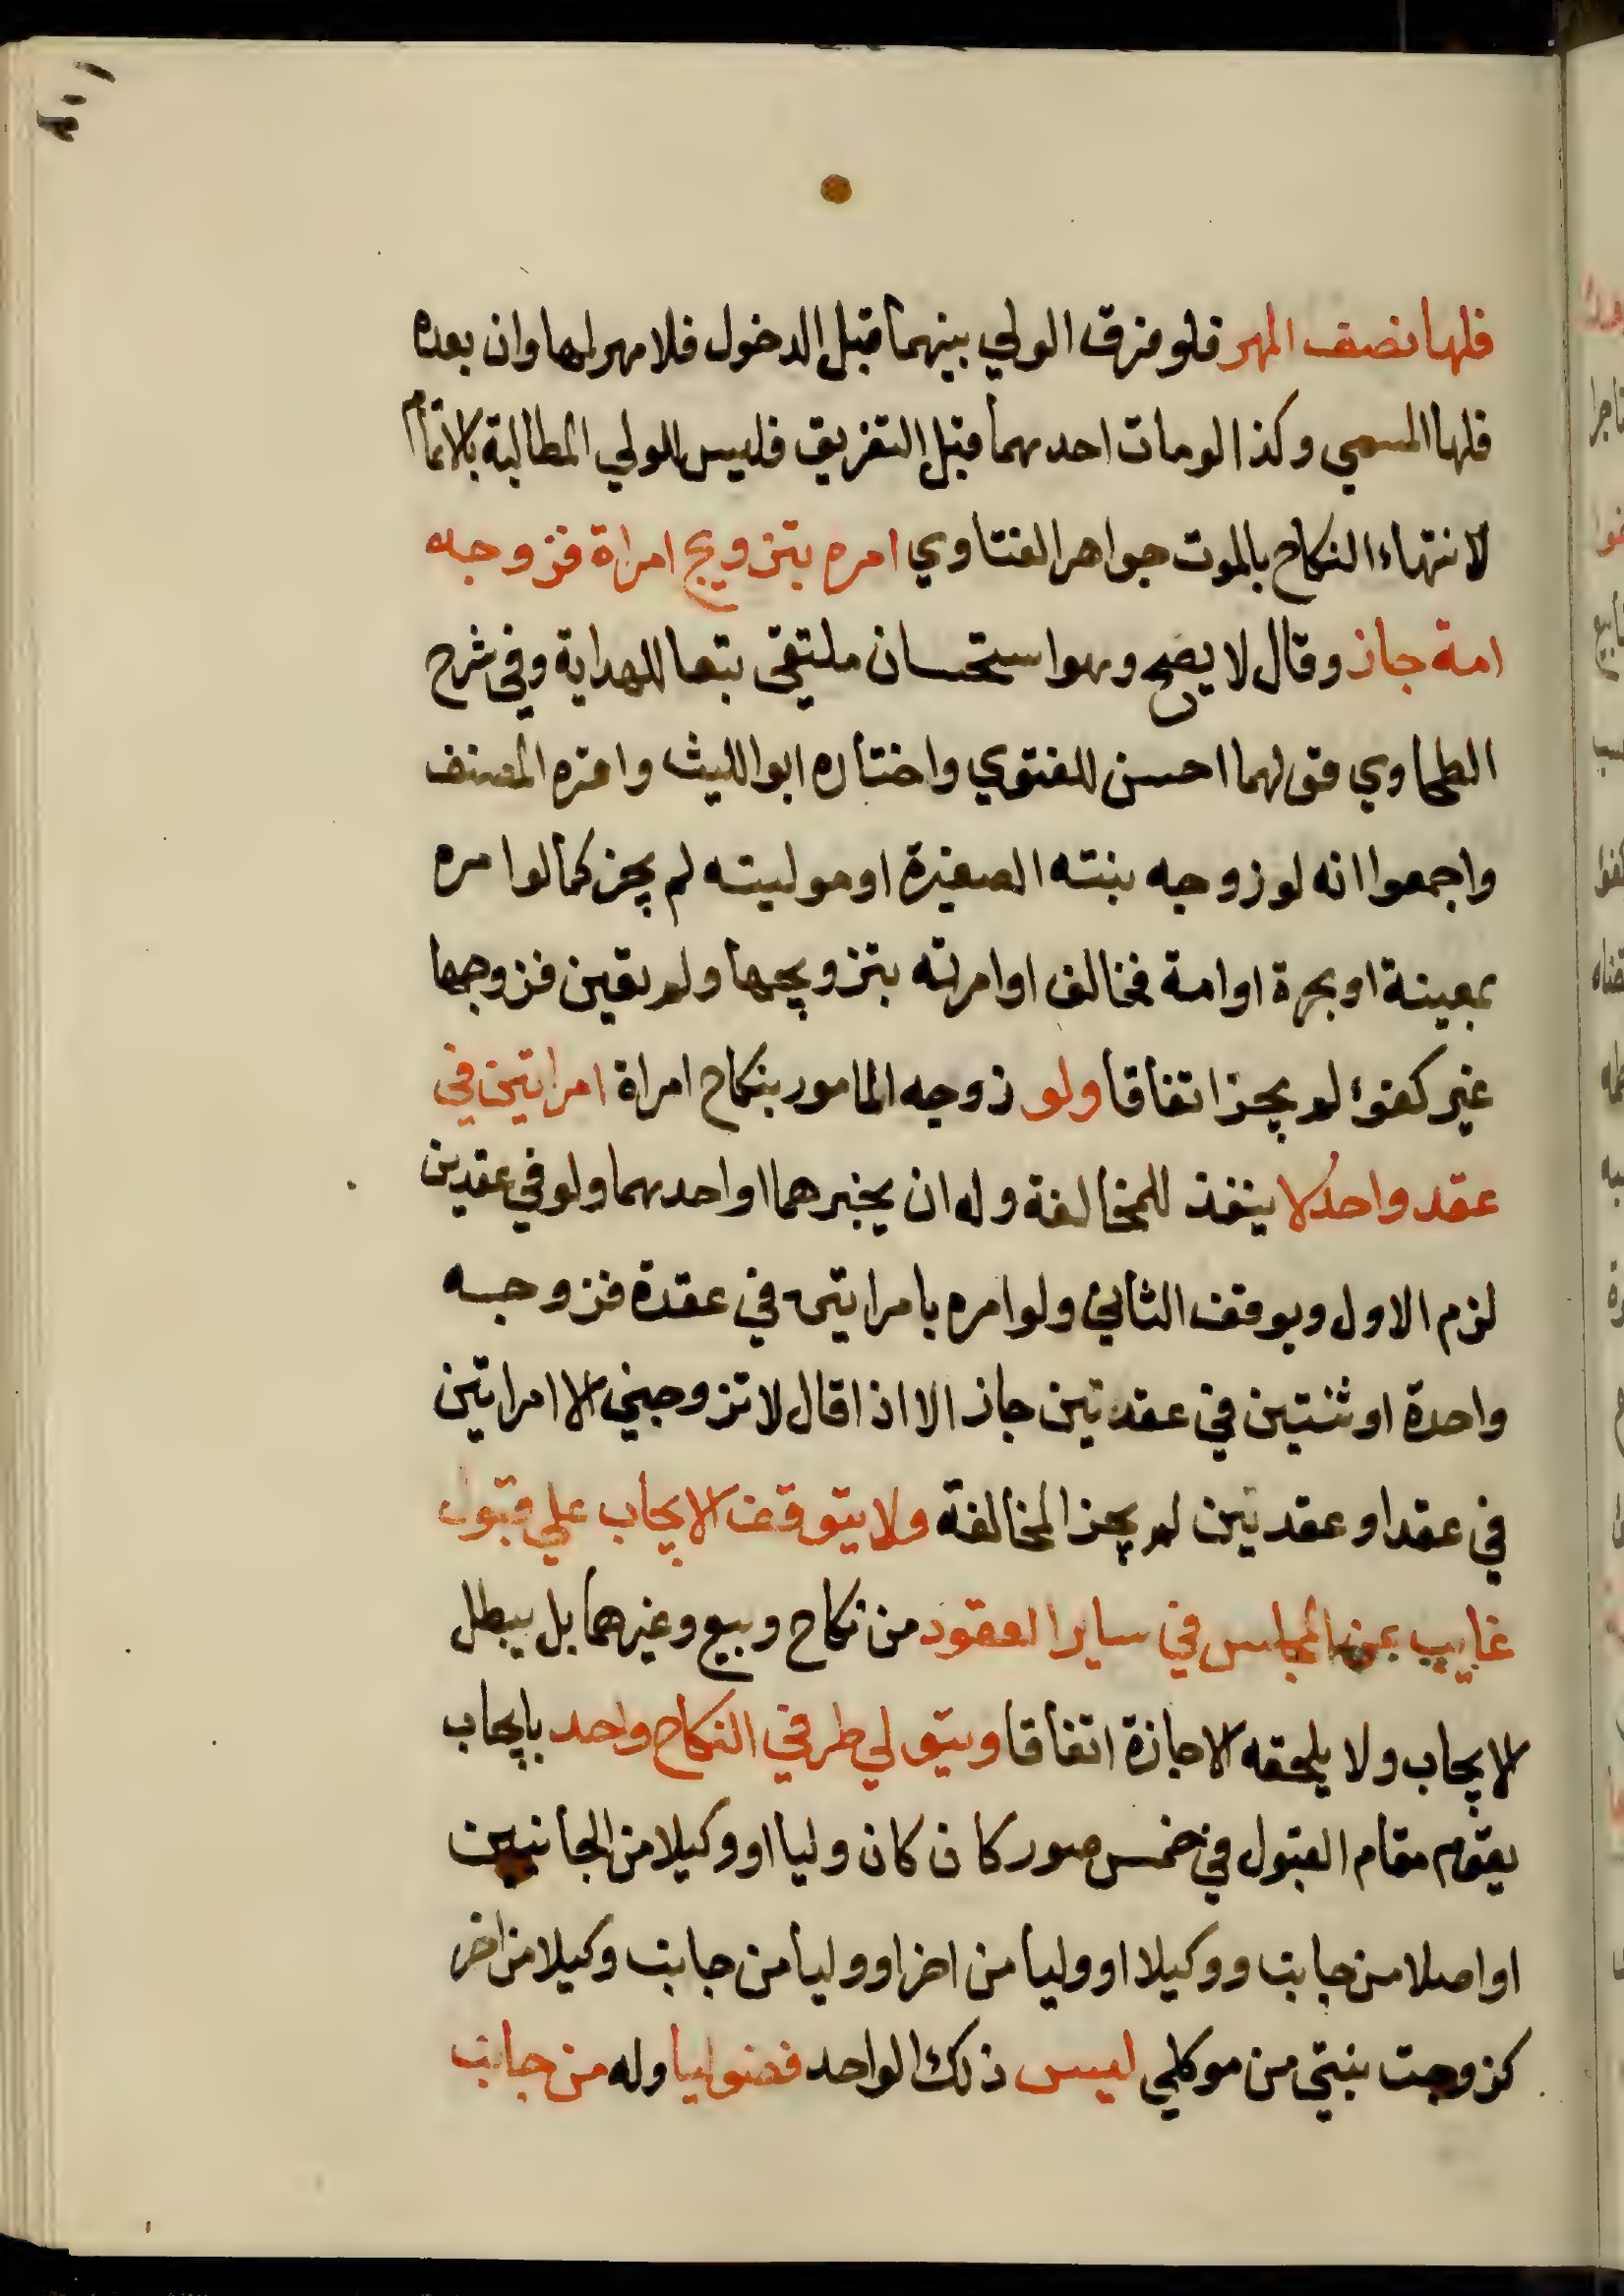 فلها نصف المهر فلو فرق الولي بينهما قبل الدخول فلا مهر لها وان بعده
فلها المسمي وكذا لو مات احدهما قبل التفريق فليس للولي المطالبة بالاتمام
لانتهاء النكاح بالموت جواهر الفتاوي امره بتزويج امراة فزوجه
امة جاز وقال لا يصح وهو استحسان ملتقي تبعا للهداية وفي شرح
الطحاوي قولهما احسن للفتوي واختاره ابو الليث واقره المصنف
واجمعوا انه لو زوجه بنته الصغيرة او موليته لم يجز كما لو امره
بمعينة او بحرة او امة فخالف او امرته بتزويجها ولم تعين فزوجها
غير كفوء لم يجز اتفاقا ولو زوجه المامور بنكاح امراة امراتين في
عقد واحد لا ينفذ للمخالفة وله ان يجيزهما او احدهما ولو في عقدين
لزم الاول ويوقف الثاني ولو امره بامراتين في عقدة فزوجه
واحدة او ثنتين في عقدتين جاز الا اذا قال لا تزوجني الا امراتين
في عقد او عقدتين لم يجز المخالفة ولا يتوقف الايجاب علي قبول
غايب عن المجلس في ساير العقود من نكاح وبيع وغيرهما بل يبطل
الايجاب ولا يلحقه الاجازة اتفاقا ويتولي طرفي النكاح واحد بايجاب
يقوم مقام القبول في خمس صور كان كان وليا او وكيلا من الجانبين
او اصلا من جانب ووكيلا او وليا من اخر او وليا من جانب وكيلا من اخر
كزوجت بنتي من موكلي ليس ذلك الواحد فضوليا وله من جانب